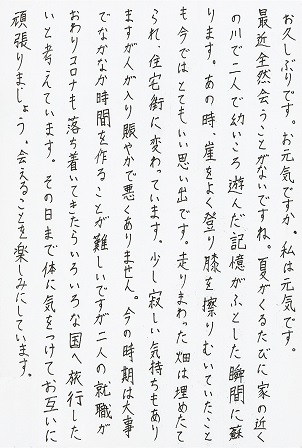 お久しぶりです。お元気ですか。私は元気です。
最近全然会うことがないですね。夏がくるたびに家の近く
の川で二人で幼いころ遊んだ記憶がふとした瞬間に蘇
ります。あの時、崖をよく登り膝を擦りむいていたこと
も今ではとてもいい思い出です。走りまわった畑は埋めたて
られ、住宅街に変わっています。少し寂しい気持ちもあり
ますが人が入り賑やかで悪くありません。今の時期は大事
でなかなか時間を作ることが難しいですが二人の就職が
おわりコロナも落ち着いてきたらいろいろな国へ旅行した
いと考えています。その日まで体に気をつけてお互いに
頑張りましょう。会えることを楽しみにしています。